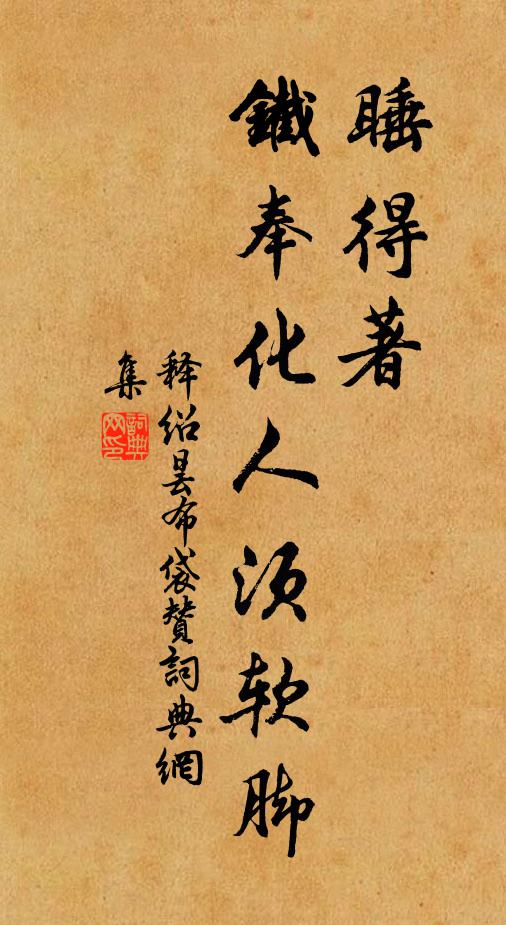 睡得著
鐵奉化人須软脚
释紹曇布袋贊詞典網
集
詞典网印